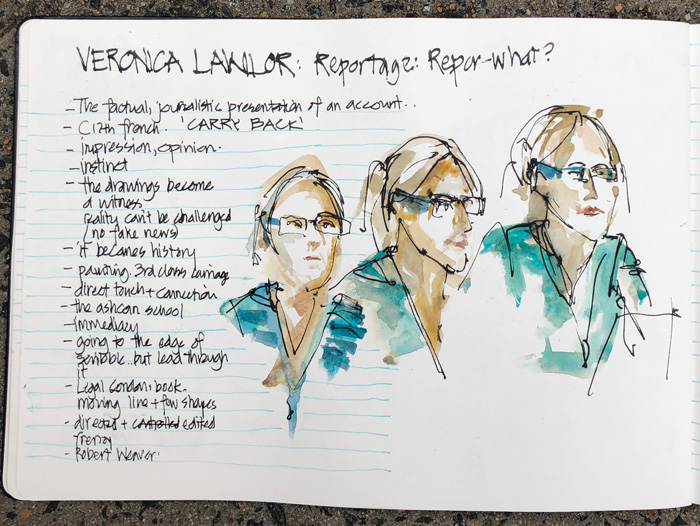 VERONICA LAWLOR: Reportage: Repor-what?
- The factual, journalistic presentation of an account..
- C17th french. 'CARRY BACK'
- impression, opinion.
- instinct
- the drawings become
a witness.
reality can't be challenged
(no fake news)
- it becomes history
- 3rd class carriage
- direct touch + connection
- the ashcan school
- immediacy
- going to the edge of
but lead through
it
- Legal London: book.
moving line + few shapes
- directed + controlled edited
frenzy
- Robert Weaver.